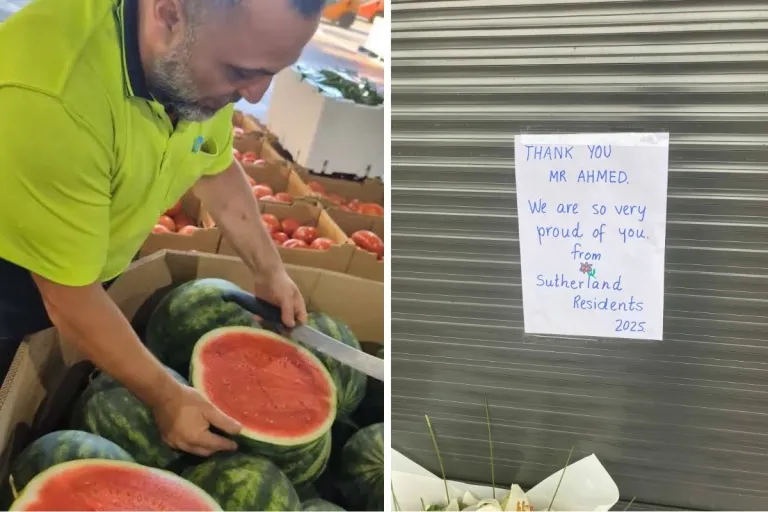 THANK YOU
MR AHMED.
We are so very
proud of you.
from
Sutherland
Residents
2025.